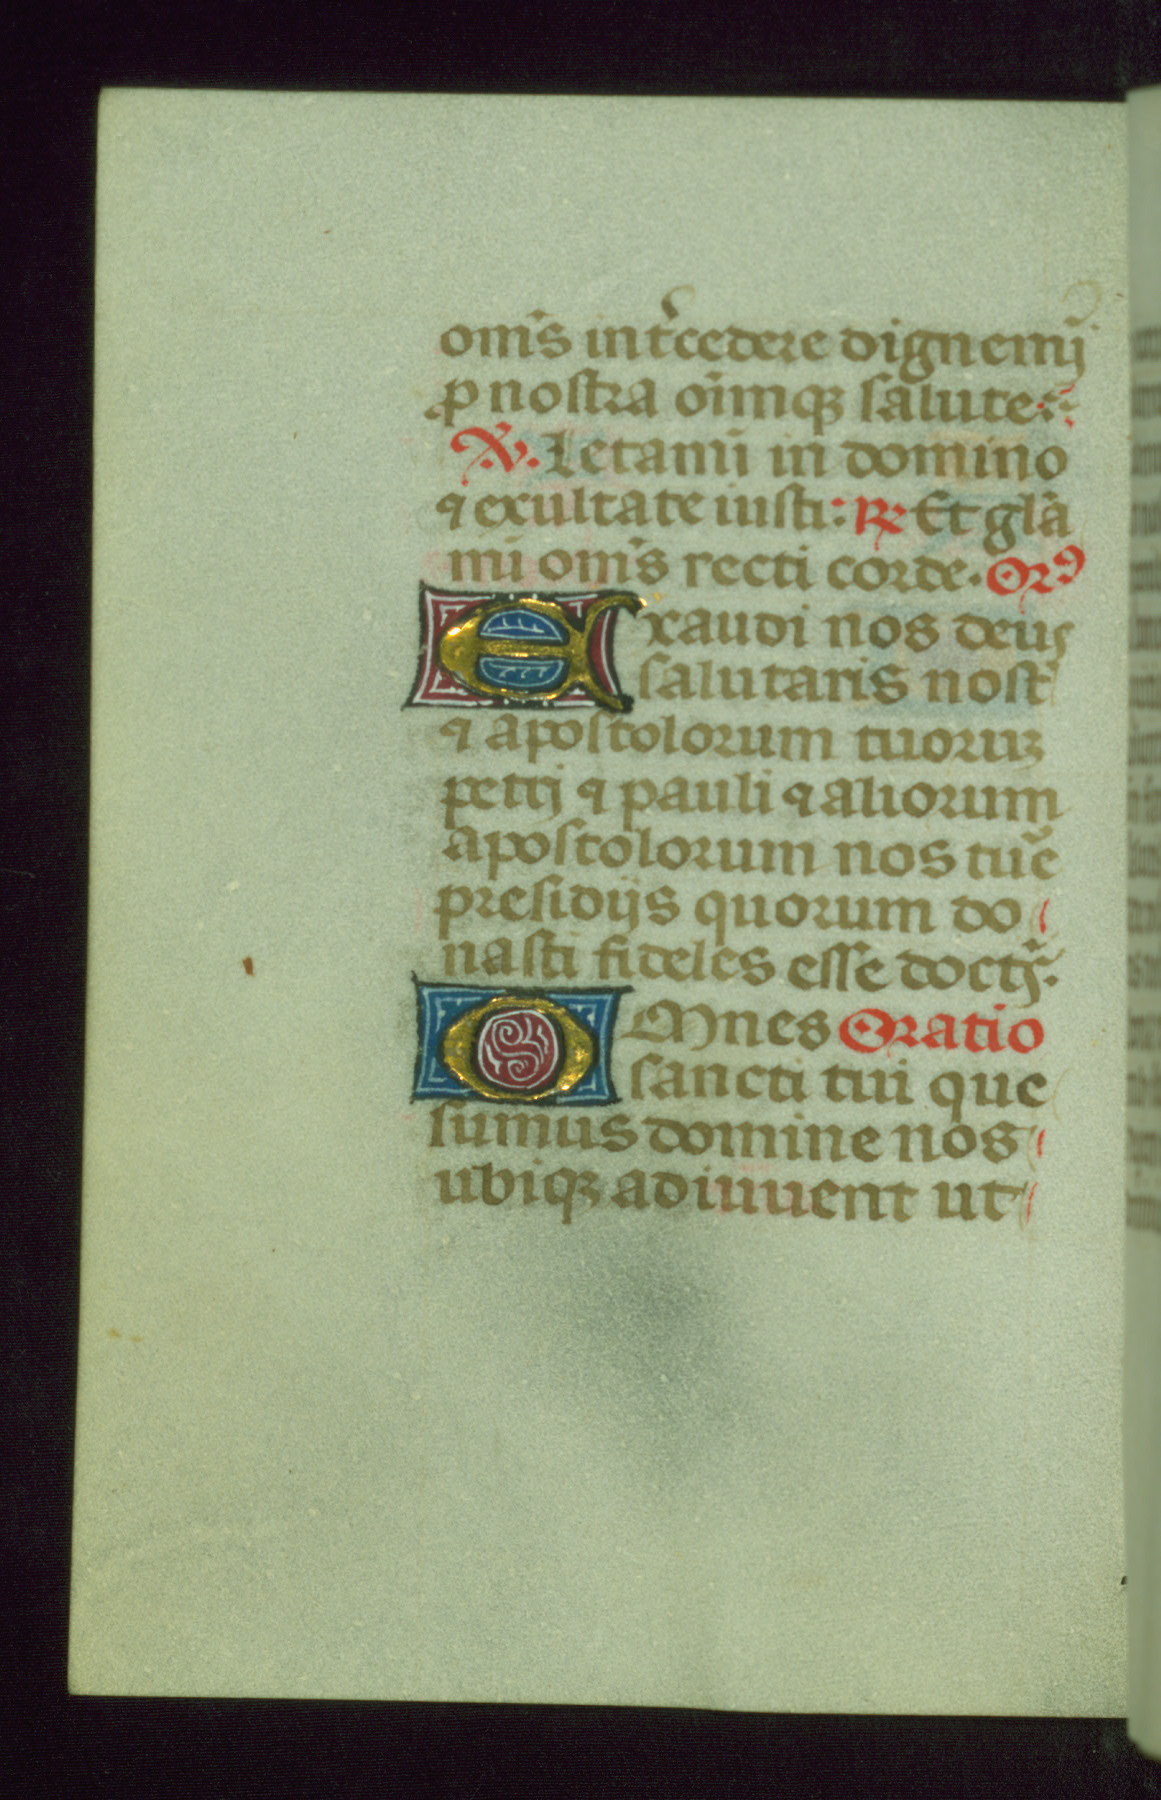 om̄s int̄cedere dignemī
ꝓ nostra oīmqꝫ salute:
℣. Letamī in domino
⁊ exultate iusti: ℟ Et glā
mī om̄s recti corde. Orꝰ
Exaudi nos deus
salutaris nost̄
⁊ apostolorum tuoruꝫ
petrj ⁊ pauli ⁊ aliorum
apostolorum nos tue᷑
presidijs quorum do
nasti fideles esse doctj᷑.
OMnes Oratio
sancti tui que
sumus domine nos
ubiqꝫ adiuuent ut